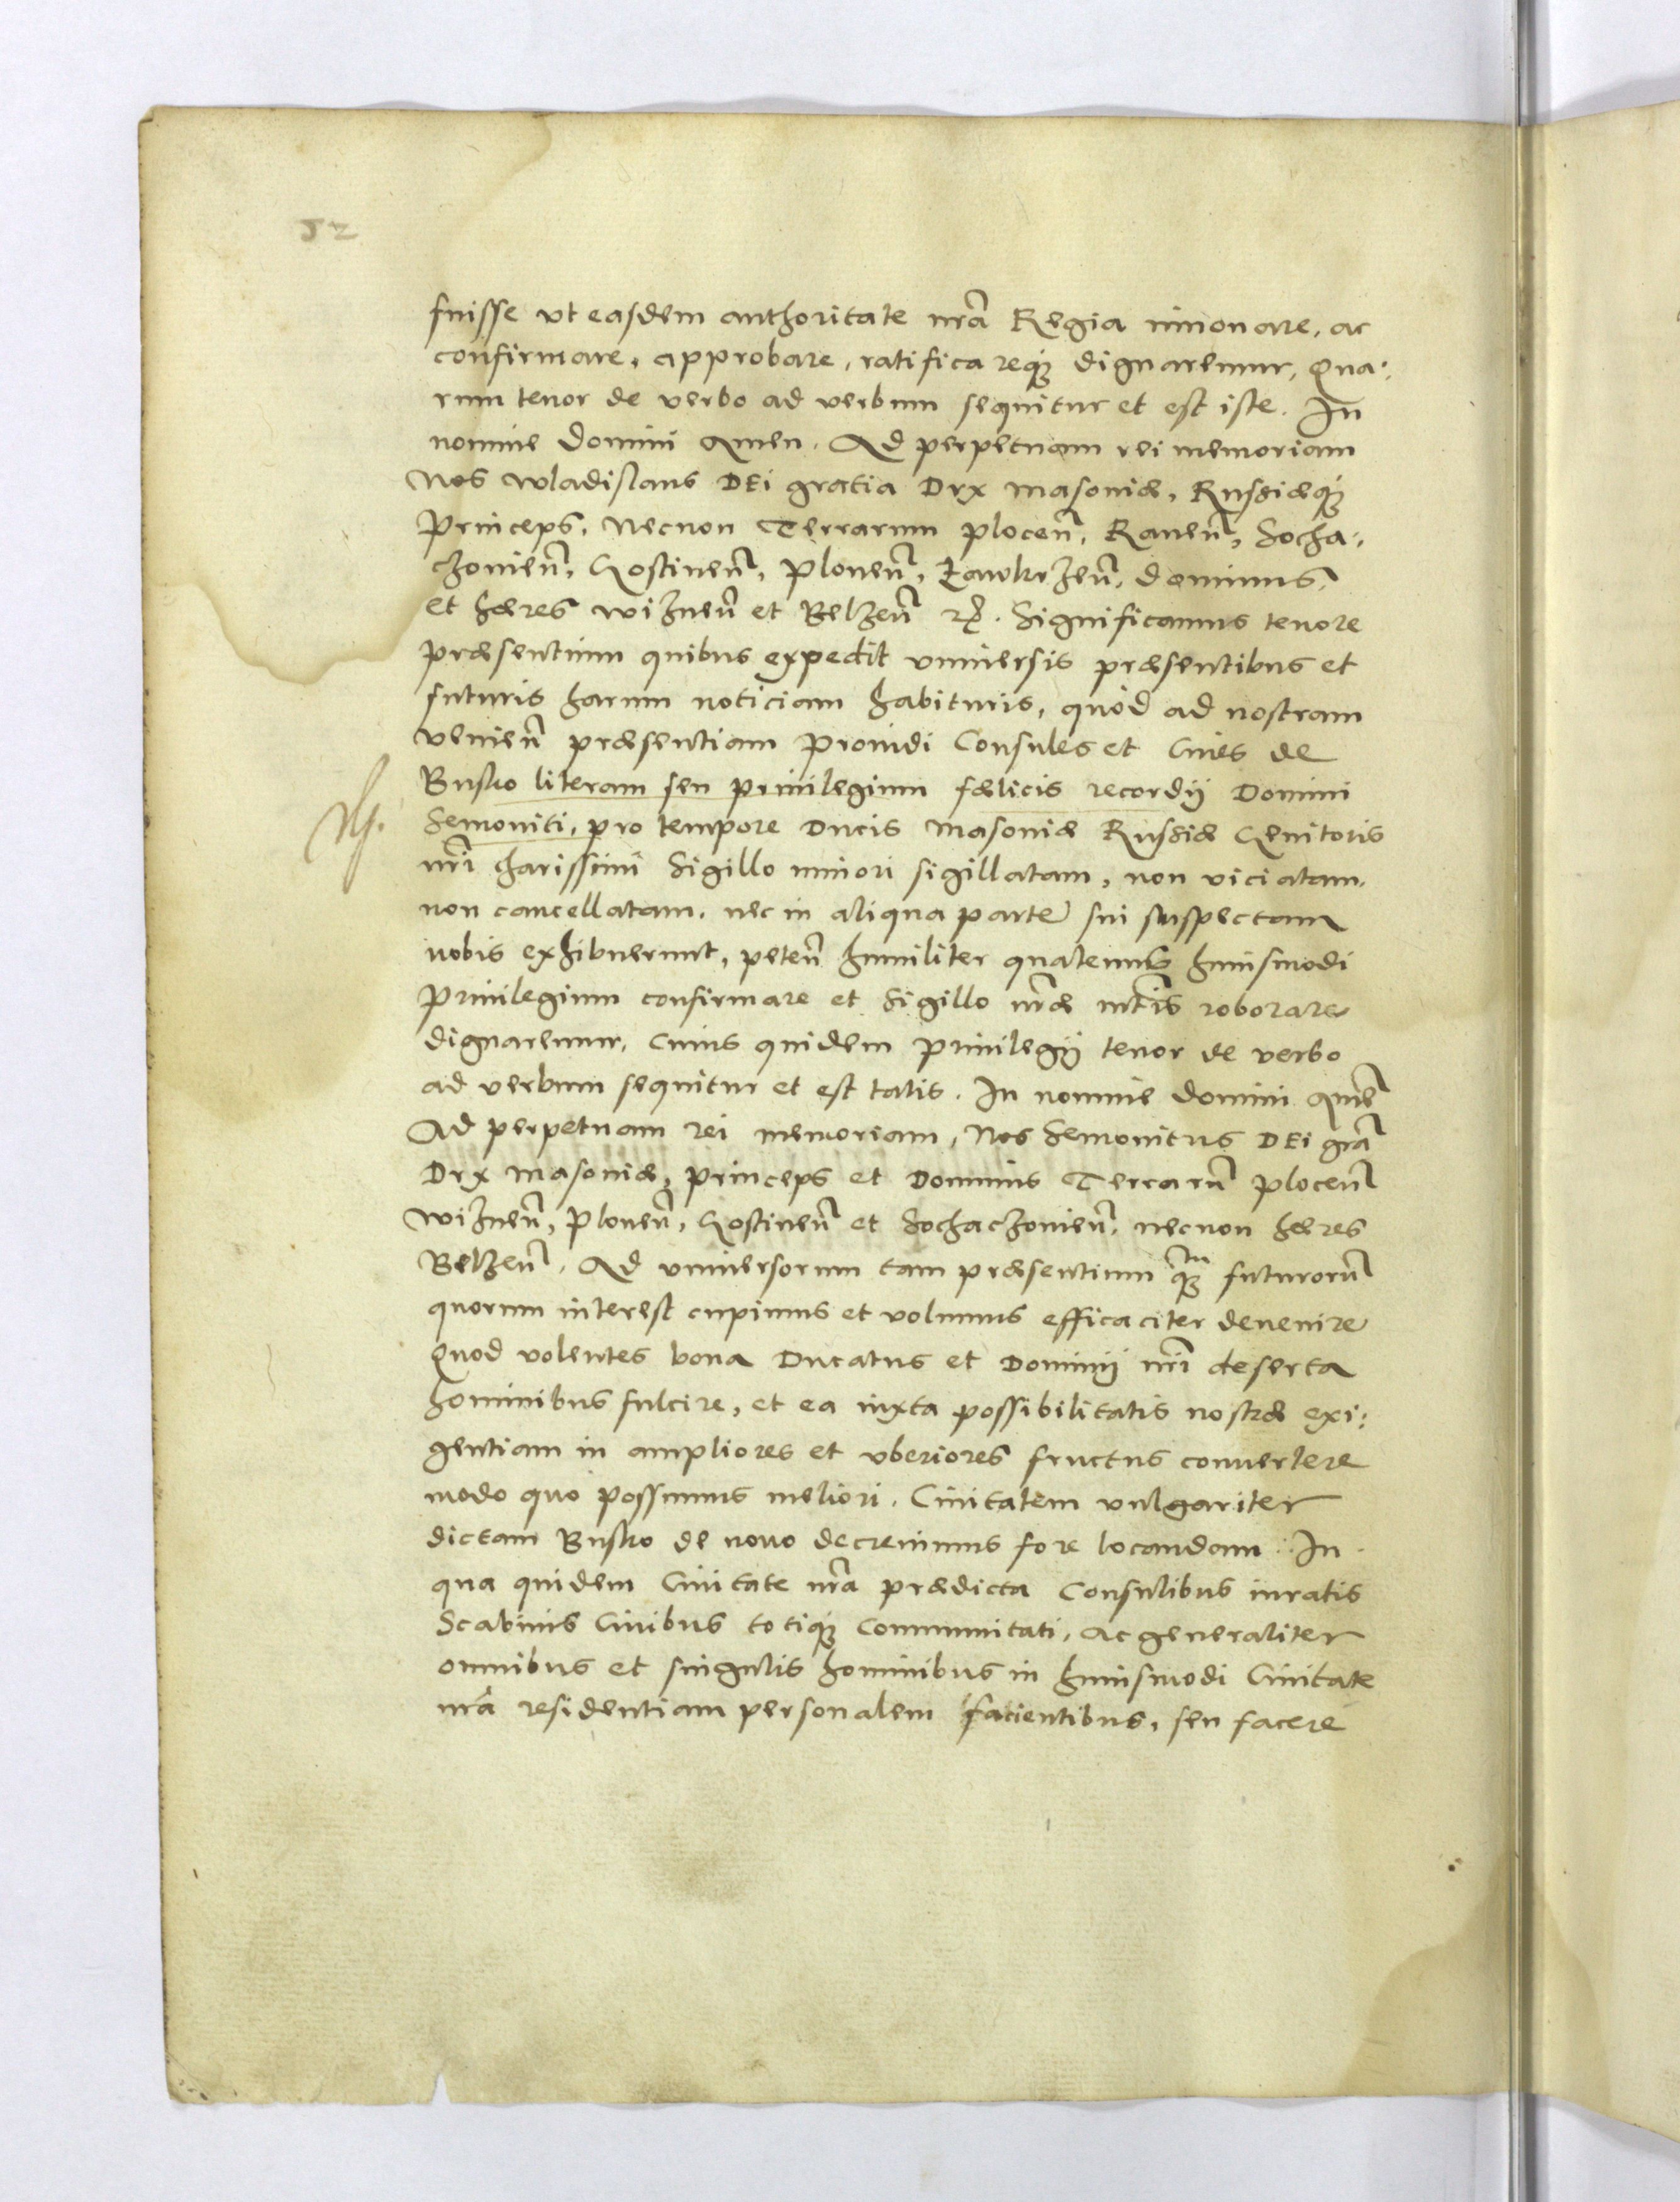 52
fuisse vt easdem authoritate nrã Regia innouare, ac
confirmare, approbare, ratificareq́ue dignaremur, Qua:
rum tenor de verbo ad verbum sequitur et est iste. In
nomine Domini Amen. Ad perpetuam rei memoriam
Nos Wladislaus DEi gratia Dux Masouiæ, Russiæq́ue
Princeps, Necnon Terrarum Plocen̄, Rauen̄, Socha:
czouien̄, Gostinen̄, Plonen̄, Zawkrzen̄, Dominus,
et hæres Wiznen̄ et Belzen̄ etc. Significamus tenore
præsentium quibus expedit vniuersis præsentibus et
futuris harum noticiam habituris, quòd ad nostram
venien̄ præsentiam Prouidi Consules et Ciues de
Busko literam seu priuilegium fælicis recordij Domini
Semouiti, pro tempore Ducis Masouiæ Russiæ Genitoris
nrĩ charissimi Sigillo minori sigillatam, non viciatam,
non cancellatam, nec in aliqua parte sui suspectam
nobis exhibuerunt, peten̄ humiliter quatenus huiusmodi
Priuilegium confirmare et Sigillo nræ̃ mt̃is roborare
dignaremur, Cuius quidem priuilegij tenor de verbo
ad verbum sequitur et est talis. In nomine Domini Amẽ
Ad perpetuam rei memoriam, Nos Semouitus DEi grã
Dux Masouiæ, Princeps et Dominus Terrarũ Plocen̄
Wiznen̄, Plonen̄, Gostinen̄ et Sochaczouien̄, necnon hæres
Belzen̄. Ad vniuersorum tam præsentium q̃ue futurorũ
quorum interest cupimus et volumus efficaciter deuenire
Quod volentes bona Ducatus et Dominij nrĩ deserta
hominibus fulcire, et ea iuxta possibilitatis nostræ exi:
gentiam in ampliores et vberiores fructus conuertere
modo quo possumus meliori. Ciuitatem vulgariter
dictam Busko de nouo decreuimus fore locandam. In
qua quidem Ciuitate nrã prædicta Consulibus iuratis
Scabinis Ciuibus totiq́ue Communitati, ac generaliter
omnibus et singulis hominibus in huiusmodi Ciuitate
nrã residentiam personalem facientibus, seu facere